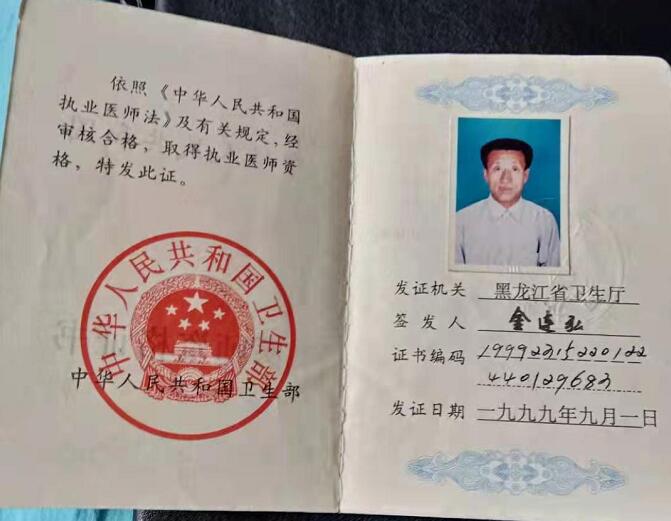 依照《中华人民共和国
执业医师法》及有关规定,经
审核合格，取得执业医师资
格，特发此证。
中华人民共和国卫生部
中华人民共和国卫生部
发证机关 黑龙江省卫生厅
签发人 金连弘
证书编码 19992315220122
440129683
发证日期 一九九九年九月一日